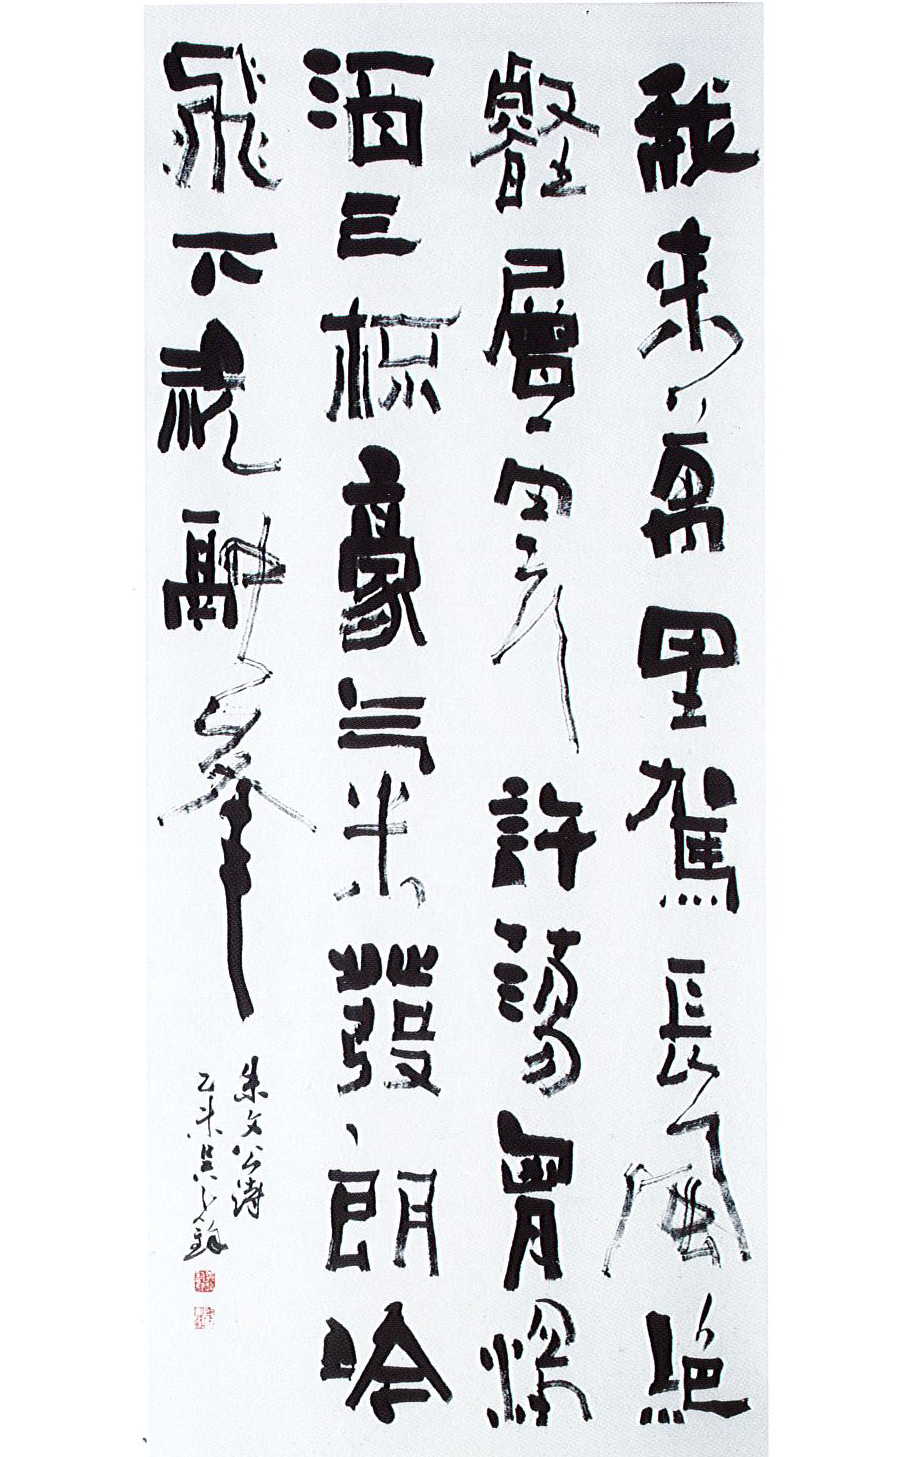 我来萬里駕長風絕
壑層雲許蕩胷濁
酒三杯豪氣發朗吟
飛下祝融峯
朱文公詩
乙未吳